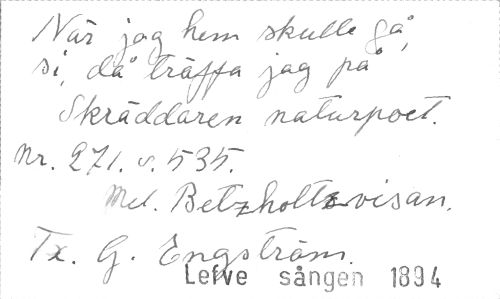 När jag hem skulle gå,
si, då träffa jag på
Skräddaren naturpoet.
Nr. 271. s. 535.
Mel. Betzholtzvisan.
Tx. G. Engström.
Lefve sången 1894